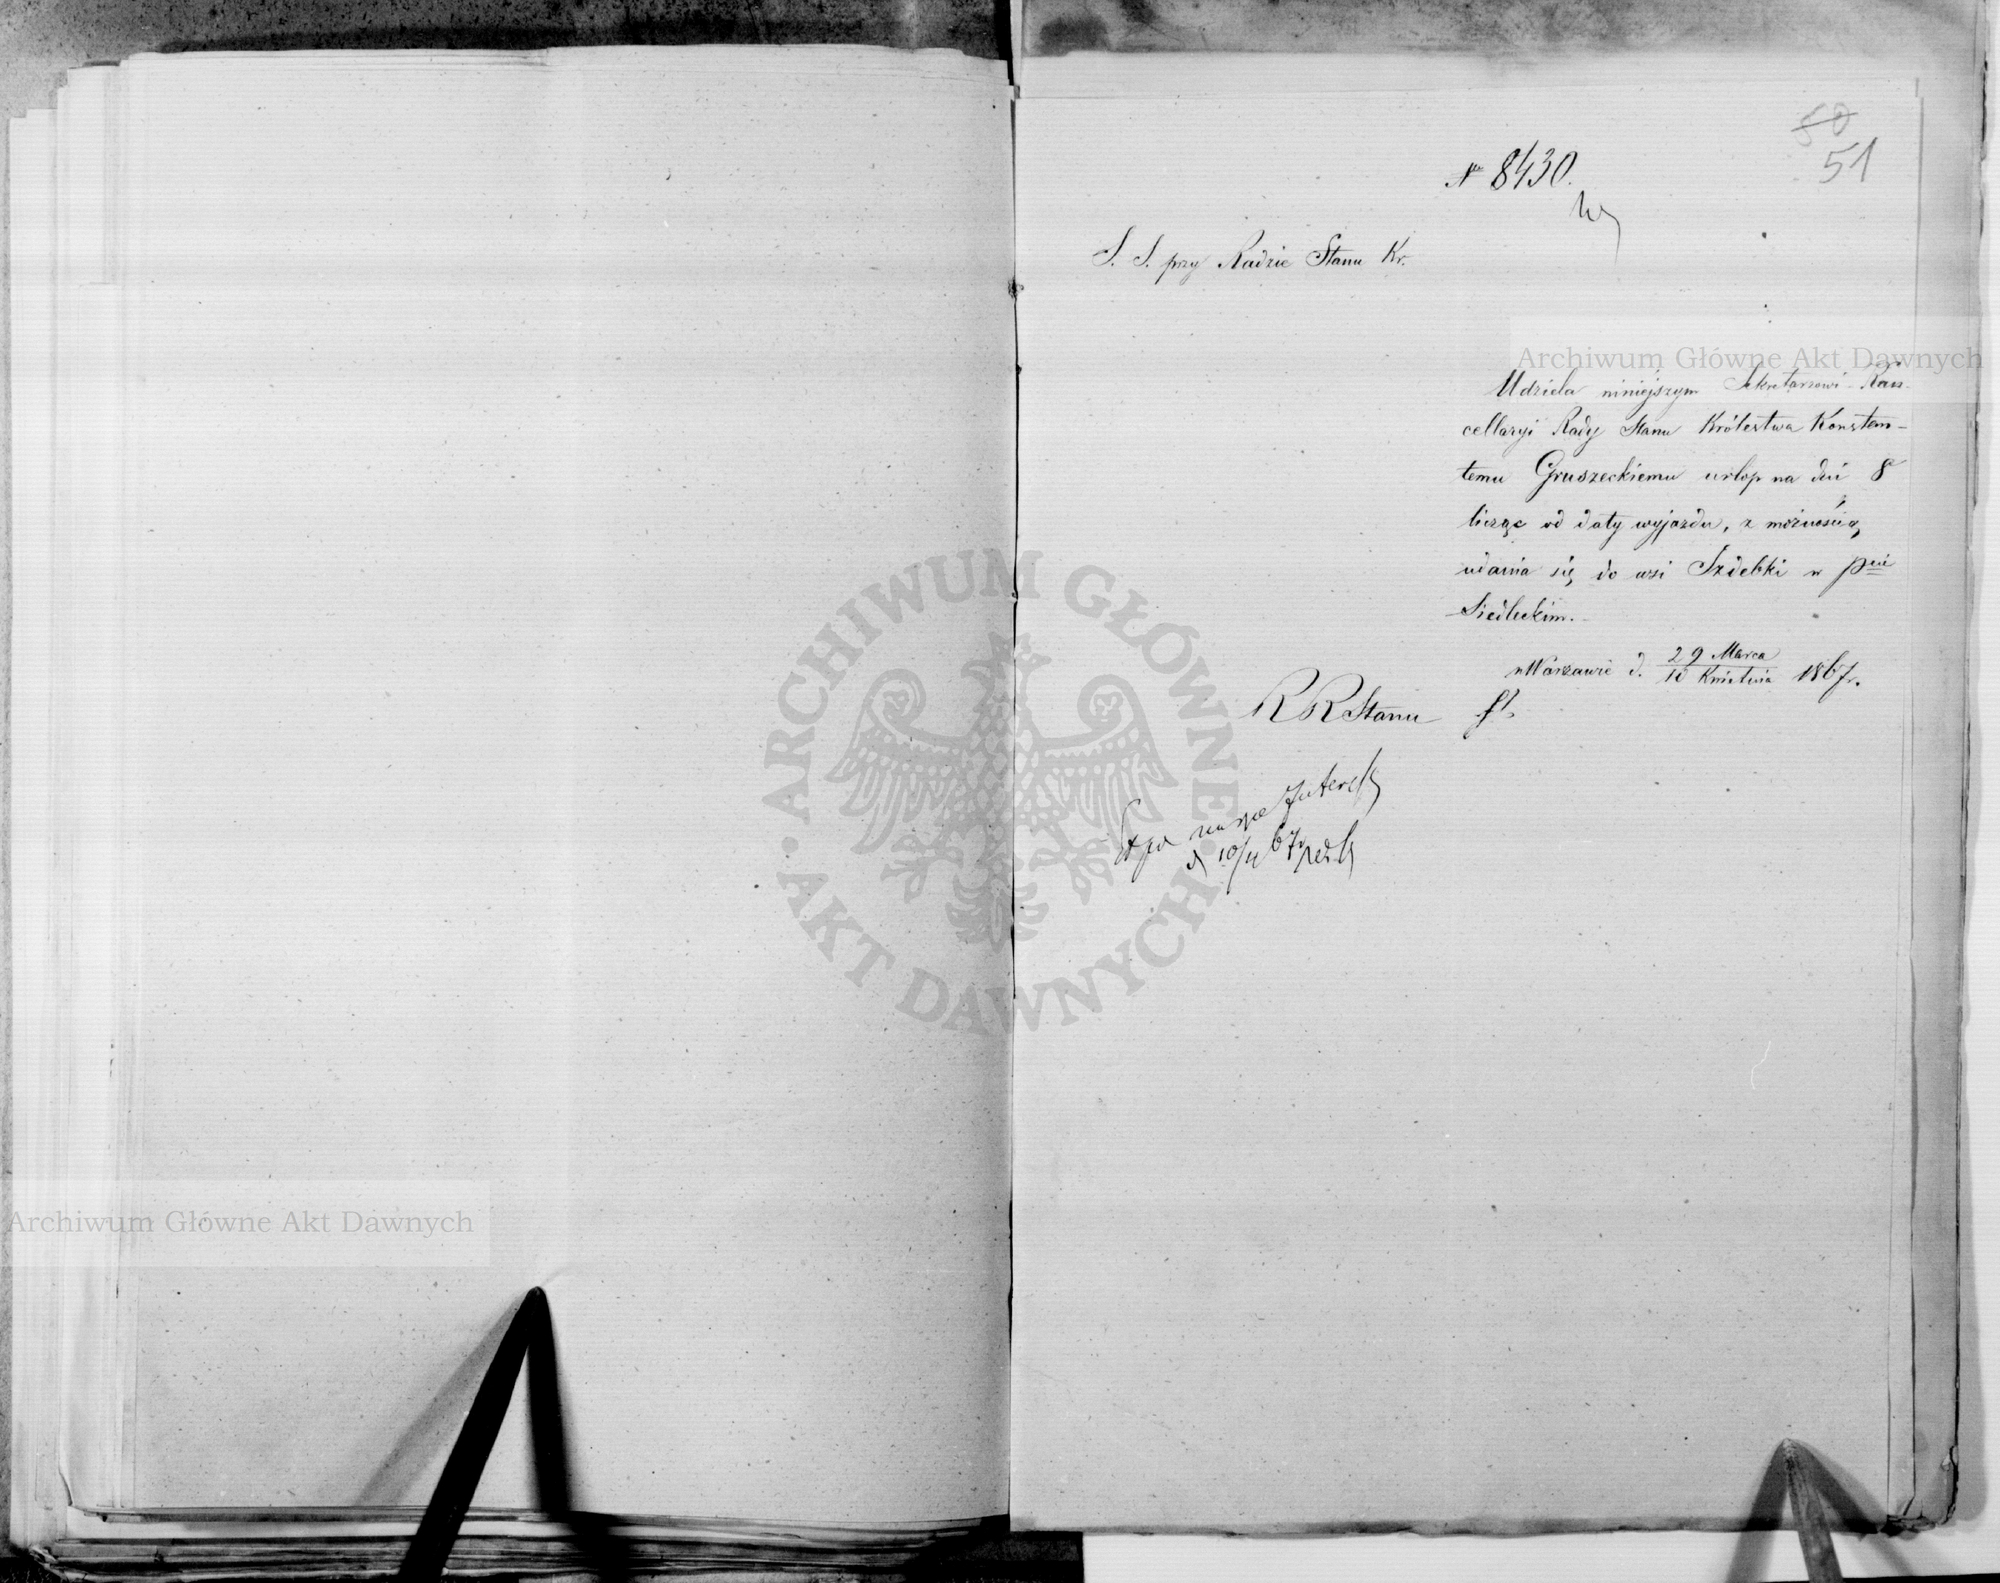 50
51
No 8430.
S. S. przy Radzie Stanu Kr.
Archiwum Główne Akt Dawnych
Udziela niniejszym Sekretarzowi Kan-
cellaryi Rady Stanu Królestwa Konstan-
temu Gruszeckiemu urlop na dni 8
licząc od daty wyjazdu, z możnością
udania się do wsi Szdebki w pcie
Siedleckim.
w Warszawie d. 29 Marca / 10 Kwietnia 1867 r.
R R Stanu
d 10/4 67
ARCHIWUM GŁÓWNE AKT DAWNYCH
Archiwum Główne Akt Dawnych